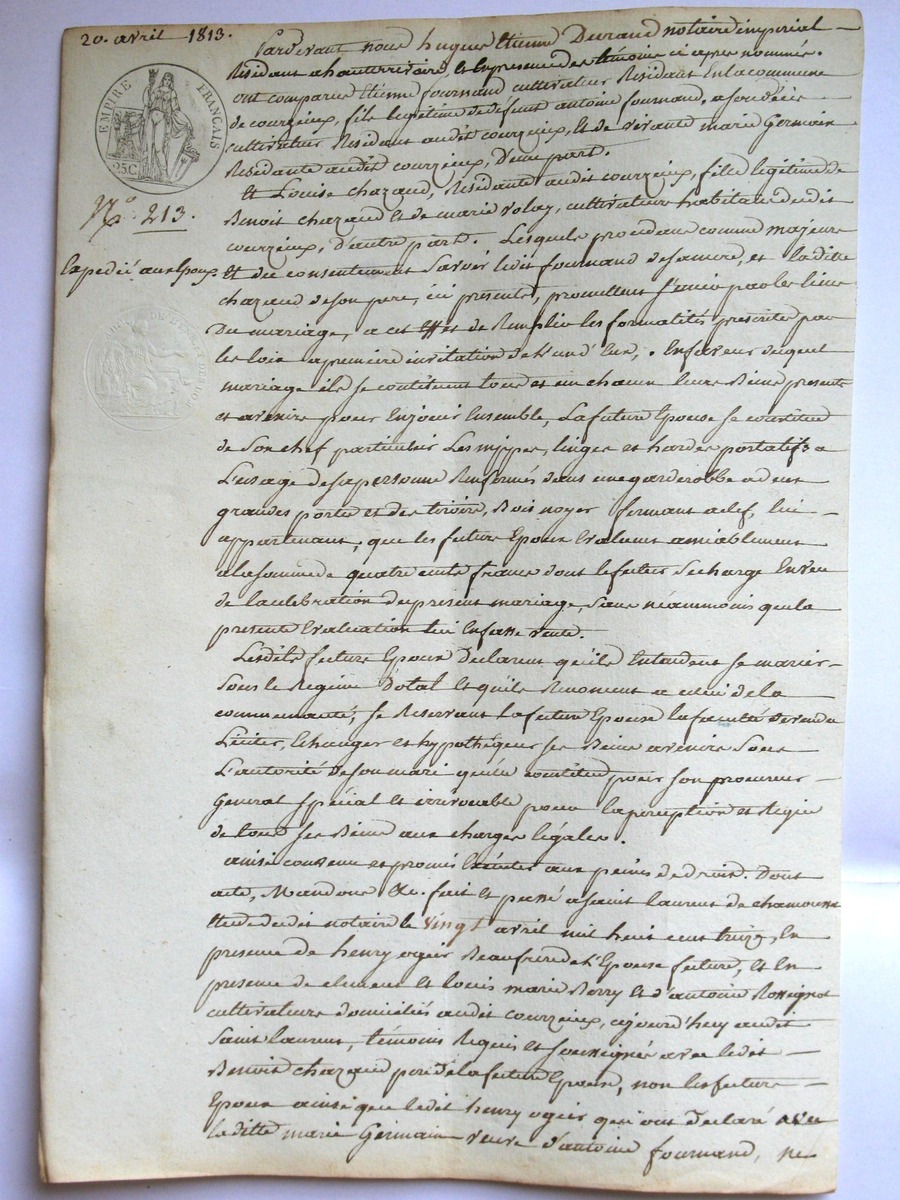 20. avril 1813.
EMPIRE FRANÇAIS
25 C
N.º 213.
Expedié aux Epoux
Pardevant nous hugues Etienne Durand notaire imperial
Residant a hauterivoire, et En presence des témoins ci apres nommés.
ont comparus Etienne fournand cultivateur Residant En la commune
de courzieux, fils legitime de defunt antoine fournand, a son décès
cultivateur Residant audit courzieux, Et de vivante marie Germain
Residante audit courzieux, D'une part.
Et Louise chazaud, Residante audit courzieux, fille legitime de
Benoit chazaud Et de marie volay, cultivateurs habitans dudit
courzieux, d'autre part. Lesquels procédans comme majeurs
Et du consentement Savoir ledit fournand de sa mere, et la ditte
chazaud de son pere, ici presents, promettent S'unir par les liens
Du mariage, a cet Effet de Remplir les formalités prescrites par
les loix a premiere invitation de L'un d'Eux, . En faveur duquel
mariage ils se constituent tous et un chacun leurs Biens presents
et avenir pour En jouir Ensemble, La future Epouse se constitue
de Son chef particulier Les nippes, linges et hardes portatifs a
L'usage de sa personne Renfermés dans une garderobbe a deux
grandes portes et des tiroirs, Bois noyer fermant a clef, lui
appartenant, que les futurs Epoux Evaluent amiablement
a la somme de quatre cents francs dont le futur Se charge En vue
de la celebration du present mariage, Sans néammoins que la
presente Evaluation lui En fasse vente.
Lesdits futurs Epoux Declarent qu'ils Entendent se marier
Sous le Regime Dotal Et qu'ils Renoncent a celui de la
communauté, Se Reservant La future Epouse la faculté de vendre
Liciter, Echanger et hypothéquer ses Biens avenir Sous
L'autorité de son mari qu'elle constitue pour son procureur
General Spécial Et irrévocable pour la perception et Regie
de tous ses Biens aux charges légales.
ainsi convenu et promis Executer aux peines de droit. Dont
acte, Mandons &c. fait Et passé a Saint Laurent de chamousset
Etude dudit notaire le vingt avril mil huit cent treize, En
presence de henry ogier Beaufrere de L'Epouse future, Et En
presence de clement Et Louis marie Berry Et d'antoine Rossignol
cultivateurs domiciliés audit courzieux, cejourd'huy audit
Saint Laurent, témoins Requis et soussignés avec ledit
Benoit chazaud pere de la future Epouse, non les futurs
Epoux ainsi que ledit henry ogier qui ont declaré avec
la ditte marie Germain veuve d'antoine fournand, ne